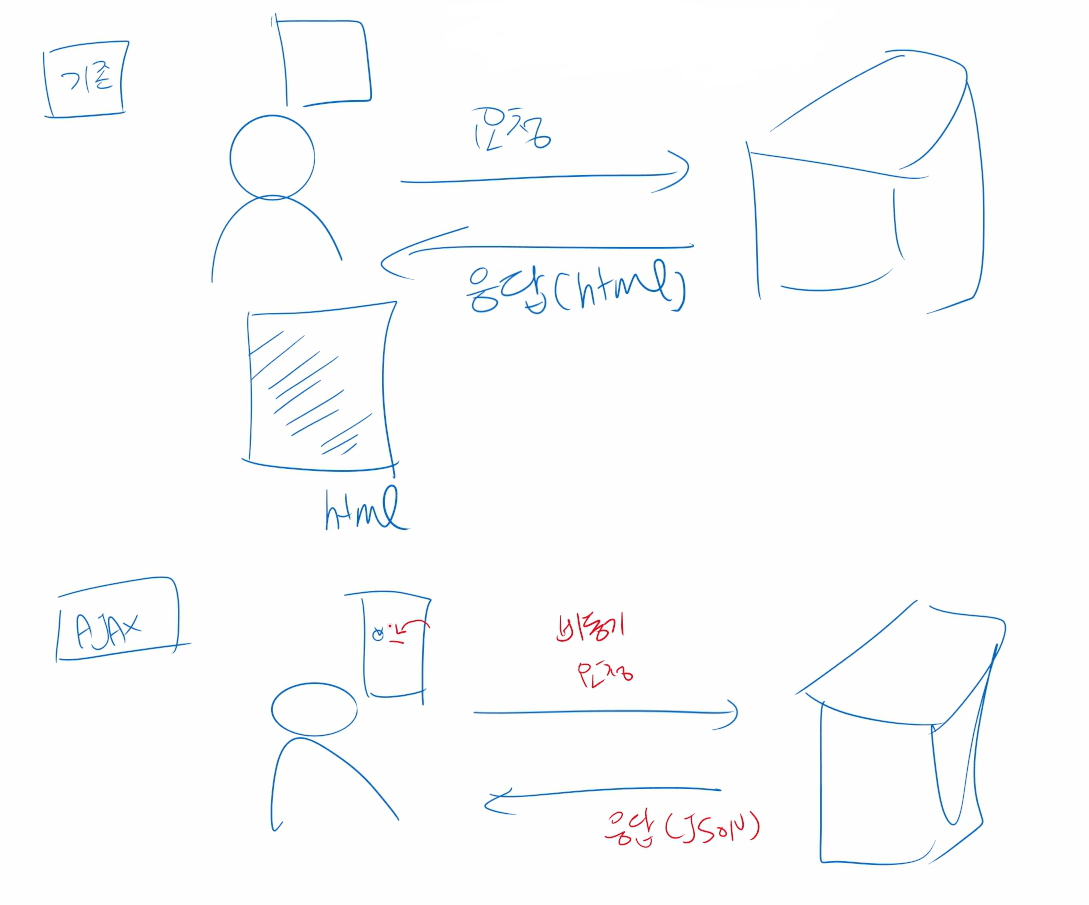 기존
요청
응답(html)
html
AJAX
비동기
요청
응답(JSON)